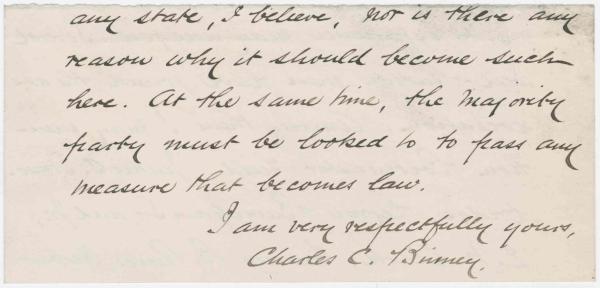 any state, I believe, nor is there any
reason why it should become such
here. At the same time, the majority
party must be looked to to pass any
measure that becomes law.
I am very respectfully yours,
Charles C. Binney.